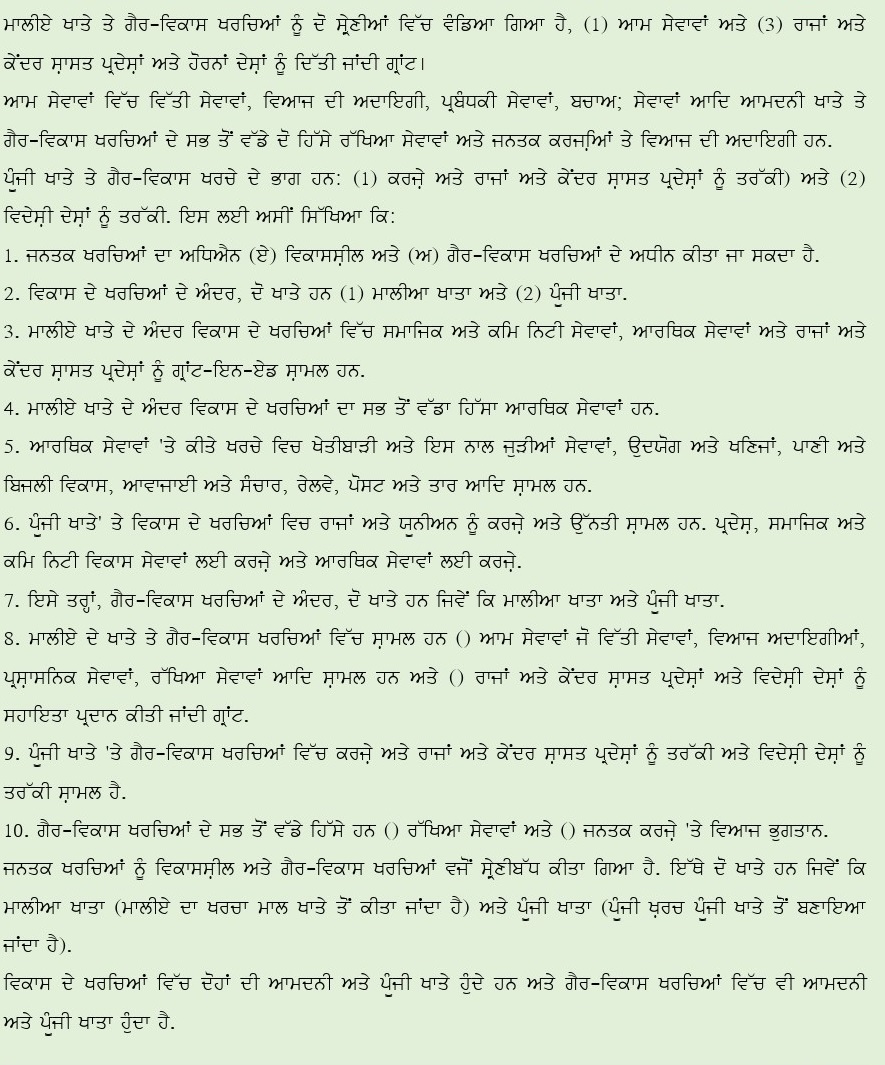 ਮਾਲੀਏ ਖਾਤੇ ਤੇ ਗੈਰ-ਵਿਕਾਸ ਖਰਚਿਆਂ ਨੂੰ ਦੋ ਸ਼੍ਰੇਣੀਆਂ ਵਿੱਚ ਵੰਡਿਆ ਗਿਆ ਹੈ, (1) ਆਮ ਸੇਵਾਵਾਂ ਅਤੇ (3) ਰਾਜਾਂ ਅਤੇ
ਕੇਂਦਰ ਸ਼ਾਸਤ ਪ੍ਰਦੇਸ਼ਾਂ ਅਤੇ ਹੋਰਨਾਂ ਦੇਸ਼ਾਂ ਨੂੰ ਦਿੱਤੀ ਜਾਂਦੀ ਗ੍ਰਾਂਟ।
ਆਮ ਸੇਵਾਵਾਂ ਵਿੱਚ ਵਿੱਤੀ ਸੇਵਾਵਾਂ, ਵਿਆਜ ਦੀ ਅਦਾਇਗੀ, ਪ੍ਰਬੰਧਕੀ ਸੇਵਾਵਾਂ, ਬਚਾਅ; ਸੇਵਾਵਾਂ ਆਦਿ ਆਮਦਨੀ ਖਾਤੇ ਤੇ
ਗੈਰ-ਵਿਕਾਸ ਖਰਚਿਆਂ ਦੇ ਸਭ ਤੋਂ ਵੱਡੇ ਦੋ ਹਿੱਸੇ ਰੱਖਿਆ ਸੇਵਾਵਾਂ ਅਤੇ ਜਨਤਕ ਕਰਜ਼ਿਆਂ ਤੇ ਵਿਆਜ ਦੀ ਅਦਾਇਗੀ ਹਨ.
ਪੂੰਜੀ ਖਾਤੇ ਤੇ ਗੈਰ-ਵਿਕਾਸ ਖਰਚੇ ਦੇ ਭਾਗ ਹਨ: (1) ਕਰਜ਼ੇ ਅਤੇ ਰਾਜਾਂ ਅਤੇ ਕੇਂਦਰ ਸ਼ਾਸਤ ਪ੍ਰਦੇਸ਼ਾਂ ਨੂੰ ਤਰੱਕੀ) ਅਤੇ (2)
ਵਿਦੇਸ਼ੀ ਦੇਸ਼ਾਂ ਨੂੰ ਤਰੱਕੀ. ਇਸ ਲਈ ਅਸੀਂ ਸਿੱਖਿਆ ਕਿ:
1. ਜਨਤਕ ਖਰਚਿਆਂ ਦਾ ਅਧਿਐਨ (ਏ) ਵਿਕਾਸਸ਼ੀਲ ਅਤੇ (ਅ) ਗੈਰ-ਵਿਕਾਸ ਖਰਚਿਆਂ ਦੇ ਅਧੀਨ ਕੀਤਾ ਜਾ ਸਕਦਾ ਹੈ.
2. ਵਿਕਾਸ ਦੇ ਖਰਚਿਆਂ ਦੇ ਅੰਦਰ, ਦੋ ਖਾਤੇ ਹਨ (1) ਮਾਲੀਆ ਖਾਤਾ ਅਤੇ (2) ਪੂੰਜੀ ਖਾਤਾ.
3. ਮਾਲੀਏ ਖਾਤੇ ਦੇ ਅੰਦਰ ਵਿਕਾਸ ਦੇ ਖਰਚਿਆਂ ਵਿੱਚ ਸਮਾਜਿਕ ਅਤੇ ਕਮਿ ਨਿਟੀ ਸੇਵਾਵਾਂ, ਆਰਥਿਕ ਸੇਵਾਵਾਂ ਅਤੇ ਰਾਜਾਂ ਅਤੇ
ਕੇਂਦਰ ਸ਼ਾਸਤ ਪ੍ਰਦੇਸ਼ਾਂ ਨੂੰ ਗ੍ਰਾਂਟ-ਇਨ-ਏਡ ਸ਼ਾਮਲ ਹਨ.
4. ਮਾਲੀਏ ਖਾਤੇ ਦੇ ਅੰਦਰ ਵਿਕਾਸ ਦੇ ਖਰਚਿਆਂ ਦਾ ਸਭ ਤੋਂ ਵੱਡਾ ਹਿੱਸਾ ਆਰਥਿਕ ਸੇਵਾਵਾਂ ਹਨ.
5. ਆਰਥਿਕ ਸੇਵਾਵਾਂ 'ਤੇ ਕੀਤੇ ਖਰਚੇ ਵਿਚ ਖੇਤੀਬਾੜੀ ਅਤੇ ਇਸ ਨਾਲ ਜੁੜੀਆਂ ਸੇਵਾਵਾਂ, ਉਦਯੋਗ ਅਤੇ ਖਣਿਜਾਂ, ਪਾਣੀ ਅਤੇ
ਬਿਜਲੀ ਵਿਕਾਸ, ਆਵਾਜਾਈ ਅਤੇ ਸੰਚਾਰ, ਰੇਲਵੇ, ਪੋਸਟ ਅਤੇ ਤਾਰ ਆਦਿ ਸ਼ਾਮਲ ਹਨ.
6. ਪੂੰਜੀ ਖਾਤੇ' ਤੇ ਵਿਕਾਸ ਦੇ ਖਰਚਿਆਂ ਵਿਚ ਰਾਜਾਂ ਅਤੇ ਯੂਨੀਅਨ ਨੂੰ ਕਰਜ਼ੇ ਅਤੇ ਉੱਨਤੀ ਸ਼ਾਮਲ ਹਨ. ਪ੍ਰਦੇਸ਼, ਸਮਾਜਿਕ ਅਤੇ
ਕਮਿ ਨਿਟੀ ਵਿਕਾਸ ਸੇਵਾਵਾਂ ਲਈ ਕਰਜ਼ੇ ਅਤੇ ਆਰਥਿਕ ਸੇਵਾਵਾਂ ਲਈ ਕਰਜ਼ੇ.
7. ਇਸੇ ਤਰ੍ਹਾਂ, ਗੈਰ-ਵਿਕਾਸ ਖਰਚਿਆਂ ਦੇ ਅੰਦਰ, ਦੋ ਖਾਤੇ ਹਨ ਜਿਵੇਂ ਕਿ ਮਾਲੀਆ ਖਾਤਾ ਅਤੇ ਪੂੰਜੀ ਖਾਤਾ.
8. ਮਾਲੀਏ ਦੇ ਖਾਤੇ ਤੇ ਗੈਰ-ਵਿਕਾਸ ਖਰਚਿਆਂ ਵਿੱਚ ਸ਼ਾਮਲ ਹਨ () ਆਮ ਸੇਵਾਵਾਂ ਜੋ ਵਿੱਤੀ ਸੇਵਾਵਾਂ, ਵਿਆਜ ਅਦਾਇਗੀਆਂ,
ਪ੍ਰਸ਼ਾਸਨਿਕ ਸੇਵਾਵਾਂ, ਰੱਖਿਆ ਸੇਵਾਵਾਂ ਆਦਿ ਸ਼ਾਮਲ ਹਨ ਅਤੇ () ਰਾਜਾਂ ਅਤੇ ਕੇਂਦਰ ਸ਼ਾਸਤ ਪ੍ਰਦੇਸ਼ਾਂ ਅਤੇ ਵਿਦੇਸ਼ੀ ਦੇਸ਼ਾਂ ਨੂੰ
ਸਹਾਇਤਾ ਪ੍ਰਦਾਨ ਕੀਤੀ ਜਾਂਦੀ ਗ੍ਰਾਂਟ.
9. ਪੂੰਜੀ ਖਾਤੇ 'ਤੇ ਗੈਰ-ਵਿਕਾਸ ਖਰਚਿਆਂ ਵਿੱਚ ਕਰਜ਼ੇ ਅਤੇ ਰਾਜਾਂ ਅਤੇ ਕੇਂਦਰ ਸ਼ਾਸਤ ਪ੍ਰਦੇਸ਼ਾਂ ਨੂੰ ਤਰੱਕੀ ਅਤੇ ਵਿਦੇਸ਼ੀ ਦੇਸ਼ਾਂ ਨੂੰ
ਤਰੱਕੀ ਸ਼ਾਮਲ ਹੈ.
10. ਗੈਰ-ਵਿਕਾਸ ਖਰਚਿਆਂ ਦੇ ਸਭ ਤੋਂ ਵੱਡੇ ਹਿੱਸੇ ਹਨ () ਰੱਖਿਆ ਸੇਵਾਵਾਂ ਅਤੇ () ਜਨਤਕ ਕਰਜ਼ੇ 'ਤੇ ਵਿਆਜ ਭੁਗਤਾਨ.
ਜਨਤਕ ਖਰਚਿਆਂ ਨੂੰ ਵਿਕਾਸਸ਼ੀਲ ਅਤੇ ਗੈਰ-ਵਿਕਾਸ ਖਰਚਿਆਂ ਵਜੋਂ ਸ਼੍ਰੇਣੀਬੱਧ ਕੀਤਾ ਗਿਆ ਹੈ. ਇੱਥੇ ਦੋ ਖਾਤੇ ਹਨ ਜਿਵੇਂ ਕਿ
ਮਾਲੀਆ ਖਾਤਾ (ਮਾਲੀਏ ਦਾ ਖਰਚਾ ਮਾਲ ਖਾਤੇ ਤੋਂ ਕੀਤਾ ਜਾਂਦਾ ਹੈ) ਅਤੇ ਪੂੰਜੀ ਖਾਤਾ (ਪੂੰਜੀ ਖ਼ਰਚ ਪੂੰਜੀ ਖਾਤੇ ਤੋਂ ਬਣਾਇਆ
ਜਾਂਦਾ ਹੈ).
ਵਿਕਾਸ ਦੇ ਖਰਚਿਆਂ ਵਿੱਚ ਦੋਹਾਂ ਦੀ ਆਮਦਨੀ ਅਤੇ ਪੂੰਜੀ ਖਾਤੇ ਹੁੰਦੇ ਹਨ ਅਤੇ ਗੈਰ-ਵਿਕਾਸ ਖਰਚਿਆਂ ਵਿੱਚ ਵੀ ਆਮਦਨੀ
ਅਤੇ ਪੂੰਜੀ ਖਾਤਾ ਹੁੰਦਾ ਹੈ.